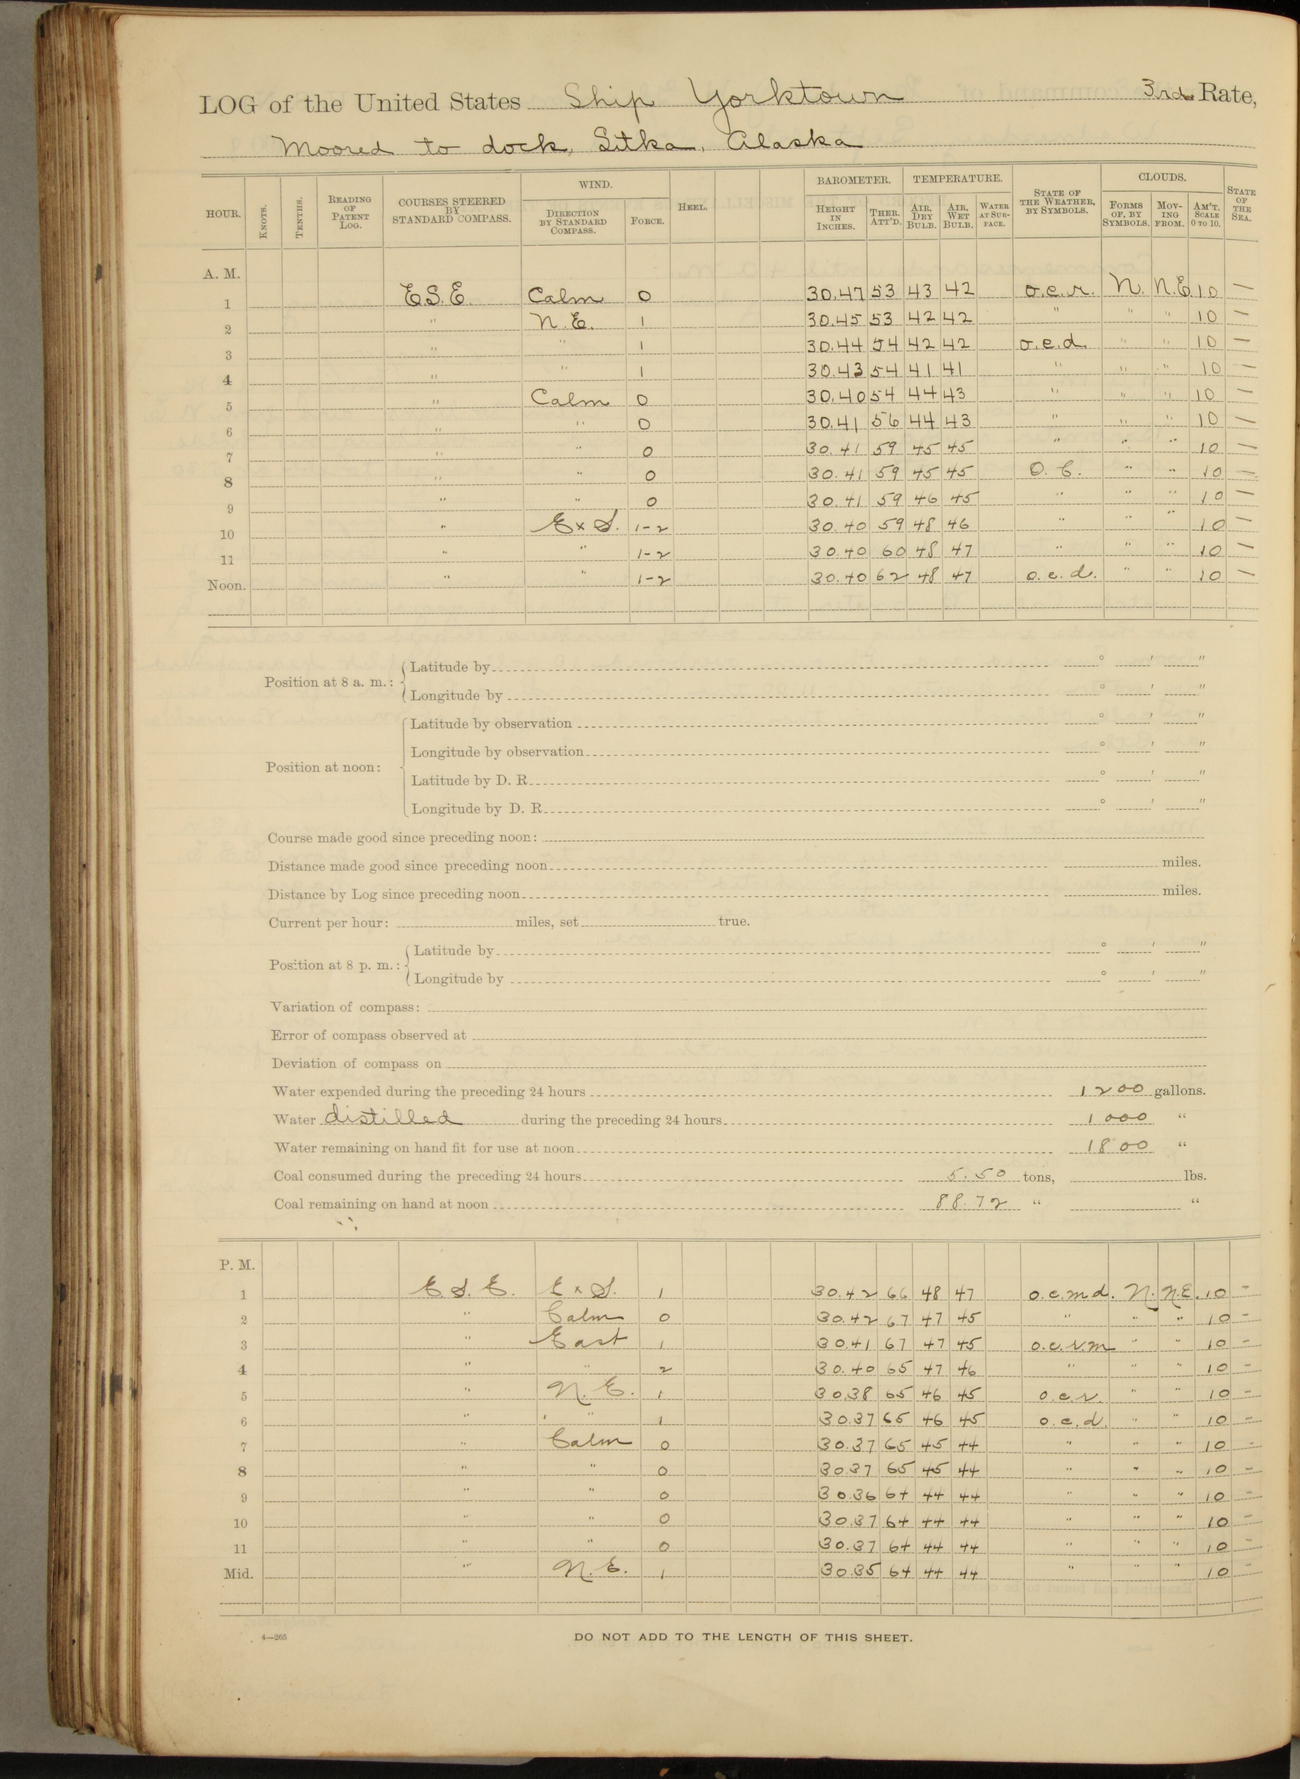 LOG of the United States Ship Yorktown 3rd Rate,
Moored to dock, Sitka, Alaska
HOUR. KNOTS. TENTHS. READING OF PATENT LOG. COURSES STEERED BY STANDARD COMPASS. WIND. DIRECTION BY STANDARD COMPASS. FORCE. HEEL. BAROMETER. HEIGHT IN INCHES. THER. ATT'D. TEMPERATURE. AIR, DRY BULB. AIR, WET BULB. WATER AT SURFACE. STATE OF THE WEATHER, BY SYMBOLS. CLOUDS. FORMS OF, BY SYMBOLS. MOVING FROM. AM'T. SCALE 0 TO 10. STATE OF THE SEA.
A. M.
1 E.S.E. Calm 0 30.47 53 43 42 o.c.r. N. N.E. 10 —
2 " N.E. 1 30.45 53 42 42 " " " 10 —
3 " " 1 30.44 54 42 42 o.c.d. " " 10 —
4 " " 1 30.43 54 41 41 " " " 10 —
5 " Calm 0 30.40 54 44 43 " " " 10 —
6 " " 0 30.41 56 44 43 " " " 10 —
7 " " 0 30.41 59 45 45 " " " 10 —
8 " " 0 30.41 59 45 45 O.C. " " 10 —
9 " " 0 30.41 59 46 45 " " " 10 —
10 " E x S. 1-2 30.40 59 48 46 " " " 10 —
11 " " 1-2 30.40 60 48 47 " " " 10 —
Noon. " " 1-2 30.40 62 48 47 o.c.d. " " 10 —
Position at 8 a. m.: Latitude by ° ' "
Longitude by ° ' "
Position at noon: Latitude by observation ° ' "
Longitude by observation ° ' "
Latitude by D. R. ° ' "
Longitude by D. R. ° ' "
Course made good since preceding noon:
Distance made good since preceding noon miles.
Distance by Log since preceding noon miles.
Current per hour: miles, set true.
Position at 8 p. m.: Latitude by ° ' "
Longitude by ° ' "
Variation of compass:
Error of compass observed at
Deviation of compass on
Water expended during the preceding 24 hours 1200 gallons.
Water distilled during the preceding 24 hours 1000 "
Water remaining on hand fit for use at noon 1800 "
Coal consumed during the preceding 24 hours 5.50 tons, lbs.
Coal remaining on hand at noon 88.72 " "
P. M.
1 E.S.E. E x S. 1 30.42 66 48 47 o.c.m.d. N. N.E. 10 -
2 " Calm 0 30.42 67 47 45 " " " 10 -
3 " East 1 30.41 67 47 45 o.c.r.m " " 10 -
4 " " 2 30.40 65 47 46 " " " 10 -
5 " N.E. 1 30.38 65 46 45 o.c.r. " " 10 -
6 " " 1 30.37 65 46 45 o.c.d. " " 10 -
7 " Calm 0 30.37 65 45 44 " " " 10 -
8 " " 0 30.37 65 45 44 " " " 10 -
9 " " 0 30.36 64 44 44 " " " 10 -
10 " " 0 30.37 64 44 44 " " " 10 -
11 " " 0 30.37 64 44 44 " " " 10 -
Mid. " N.E. 1 30.35 64 44 44 " " " 10 -
4—265
DO NOT ADD TO THE LENGTH OF THIS SHEET.